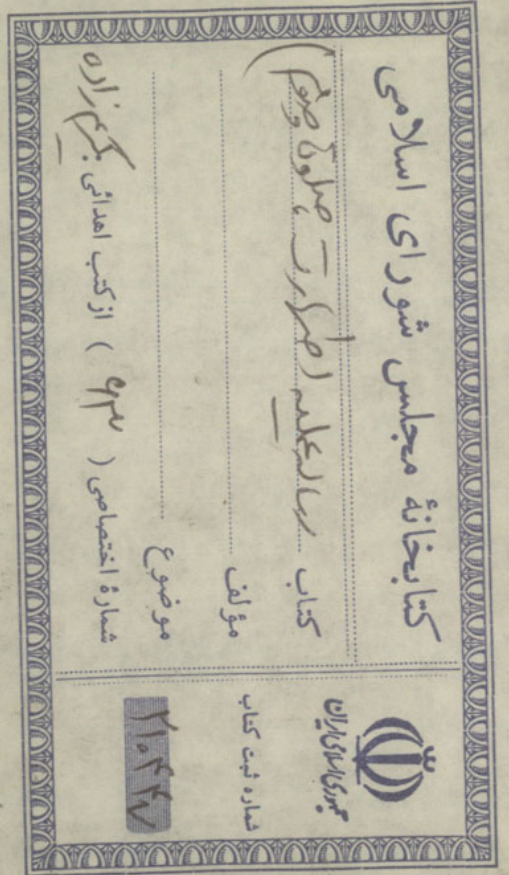 کتابخانهٔ مجلس شورای اسلامی
کتاب رساله علمیه (طهارت، صلوة و صوم)
مؤلف
موضوع
شمارهٔ اختصاصی ( ۹۳۰ ) از کتب اهدائی : کرم‌زاده
جمهوری اسلامی ایران
شماره ثبت کتاب
۲۱۰۴۴۷